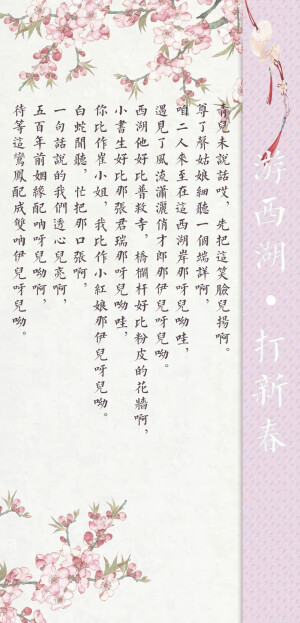 游西湖·打新春
青兒未說話哎，先把這笑臉兒揚啊。
尊了聲姑娘細聽一個端詳啊，
咱二人來至在這西湖岸那呀兒呦哇，
遇見了風流瀟灑俏才郎那伊兒呀兒呦。
西湖他好比普救寺，橋欄杆好比粉皮的花牆啊，
小書生好比那張君瑞那呀兒呦哇，
你比作崔小姐，我比作小紅娘那伊兒呀兒呦。
白蛇聞聽，忙把那口張啊，
一句話說的我們透心兒亮啊，
五百年前姻緣配吶呀兒呦啊，
待等這鸞鳳配成雙吶伊兒呀兒呦。